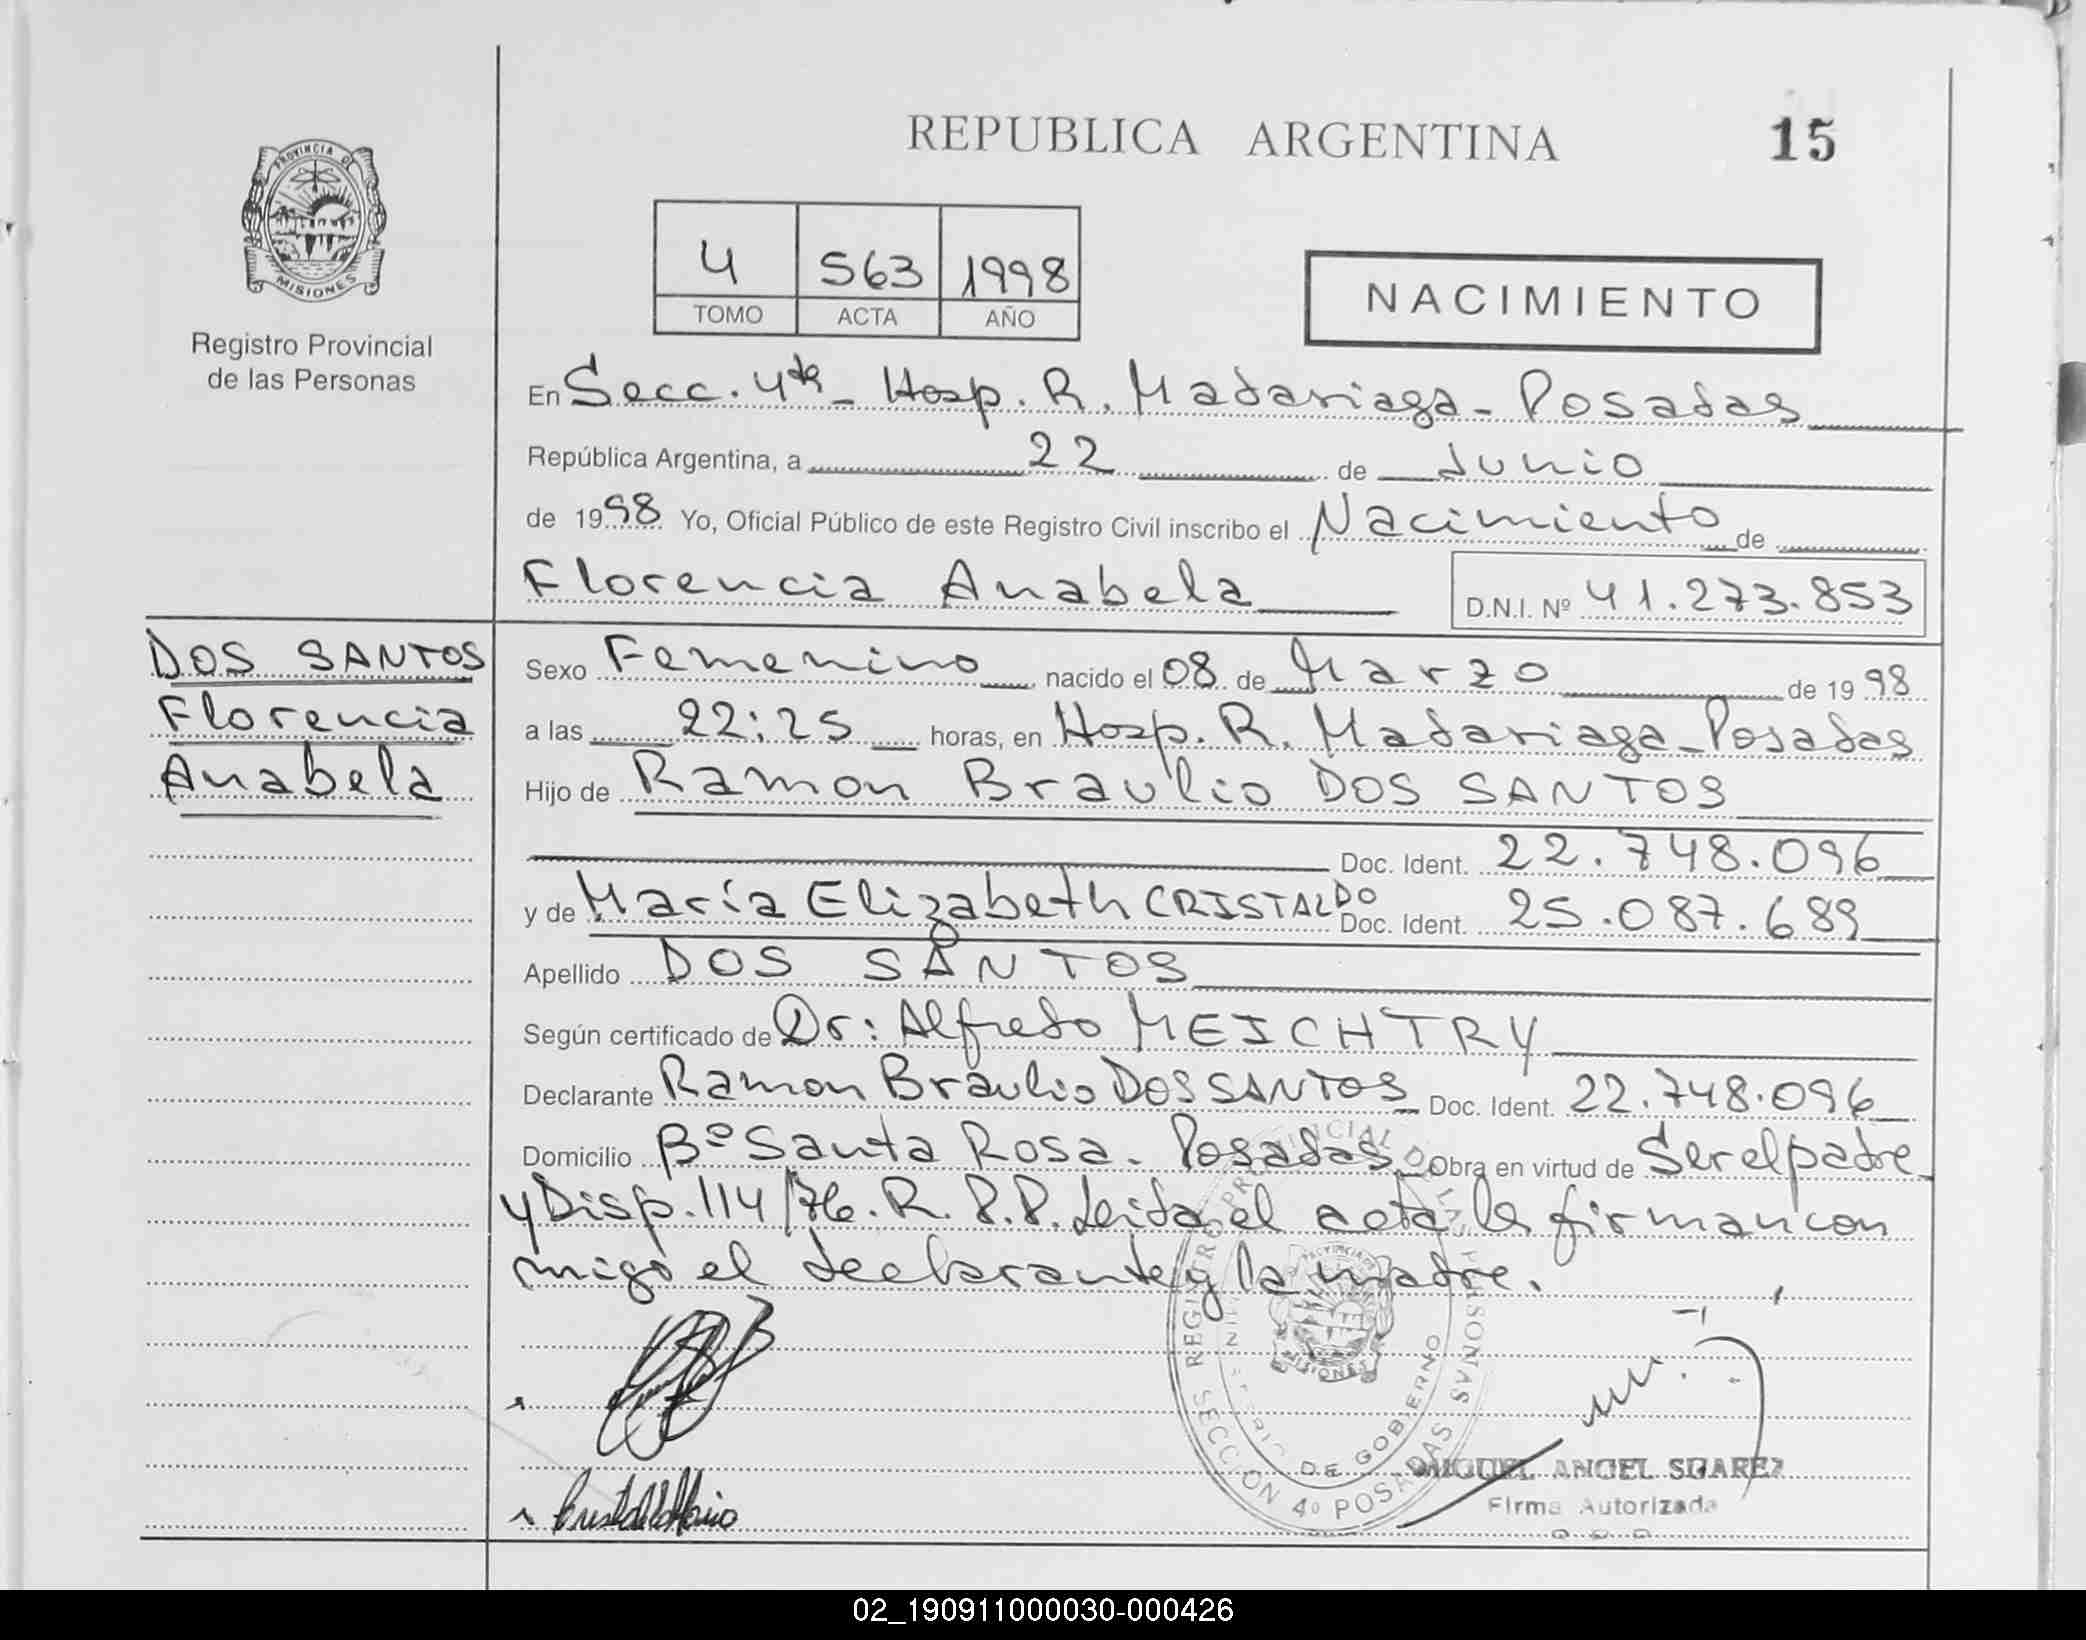 REPUBLICA ARGENTINA
15
PROVINCIA DE
MISIONES
Registro Provincial
de las Personas
4 563 1998
TOMO ACTA AÑO
NACIMIENTO
En Secc. 4ta - Hosp. R. Madariaga - Posadas
República Argentina, a 22 de Junio
de 1998 Yo, Oficial Público de este Registro Civil inscribo el Nacimiento de
Florencia Anabela D.N.I. Nº 41.273.853
DOS SANTOS
Florencia
Anabela
Sexo Femenino nacido el 08 de Marzo de 1998
a las 22:25 horas, en Hosp. R. Madariaga - Posadas
Hijo de Ramon Braulio DOS SANTOS
Doc. Ident. 22.748.096
y de María Elizabeth CRISTALDO Doc. Ident. 25.087.689
Apellido DOS SANTOS
Según certificado de Dr: Alfredo MEICHTRY
Declarante Ramon Braulio DOS SANTOS Doc. Ident. 22.748.096
Domicilio Bº Santa Rosa - Posadas Obra en virtud de Ser el padre
y Disp. 114/76. R. P. P. Leida el acta la firman con
migo el declarante y la madre.
REGISTRO PROVINCIAL DE LAS PERSONAS
SECCION 4º POSADAS
MINISTERIO DE GOBIERNO
MISIONES
MIGUEL ANGEL SUAREZ
Firma Autorizada
02_190911000030-000426